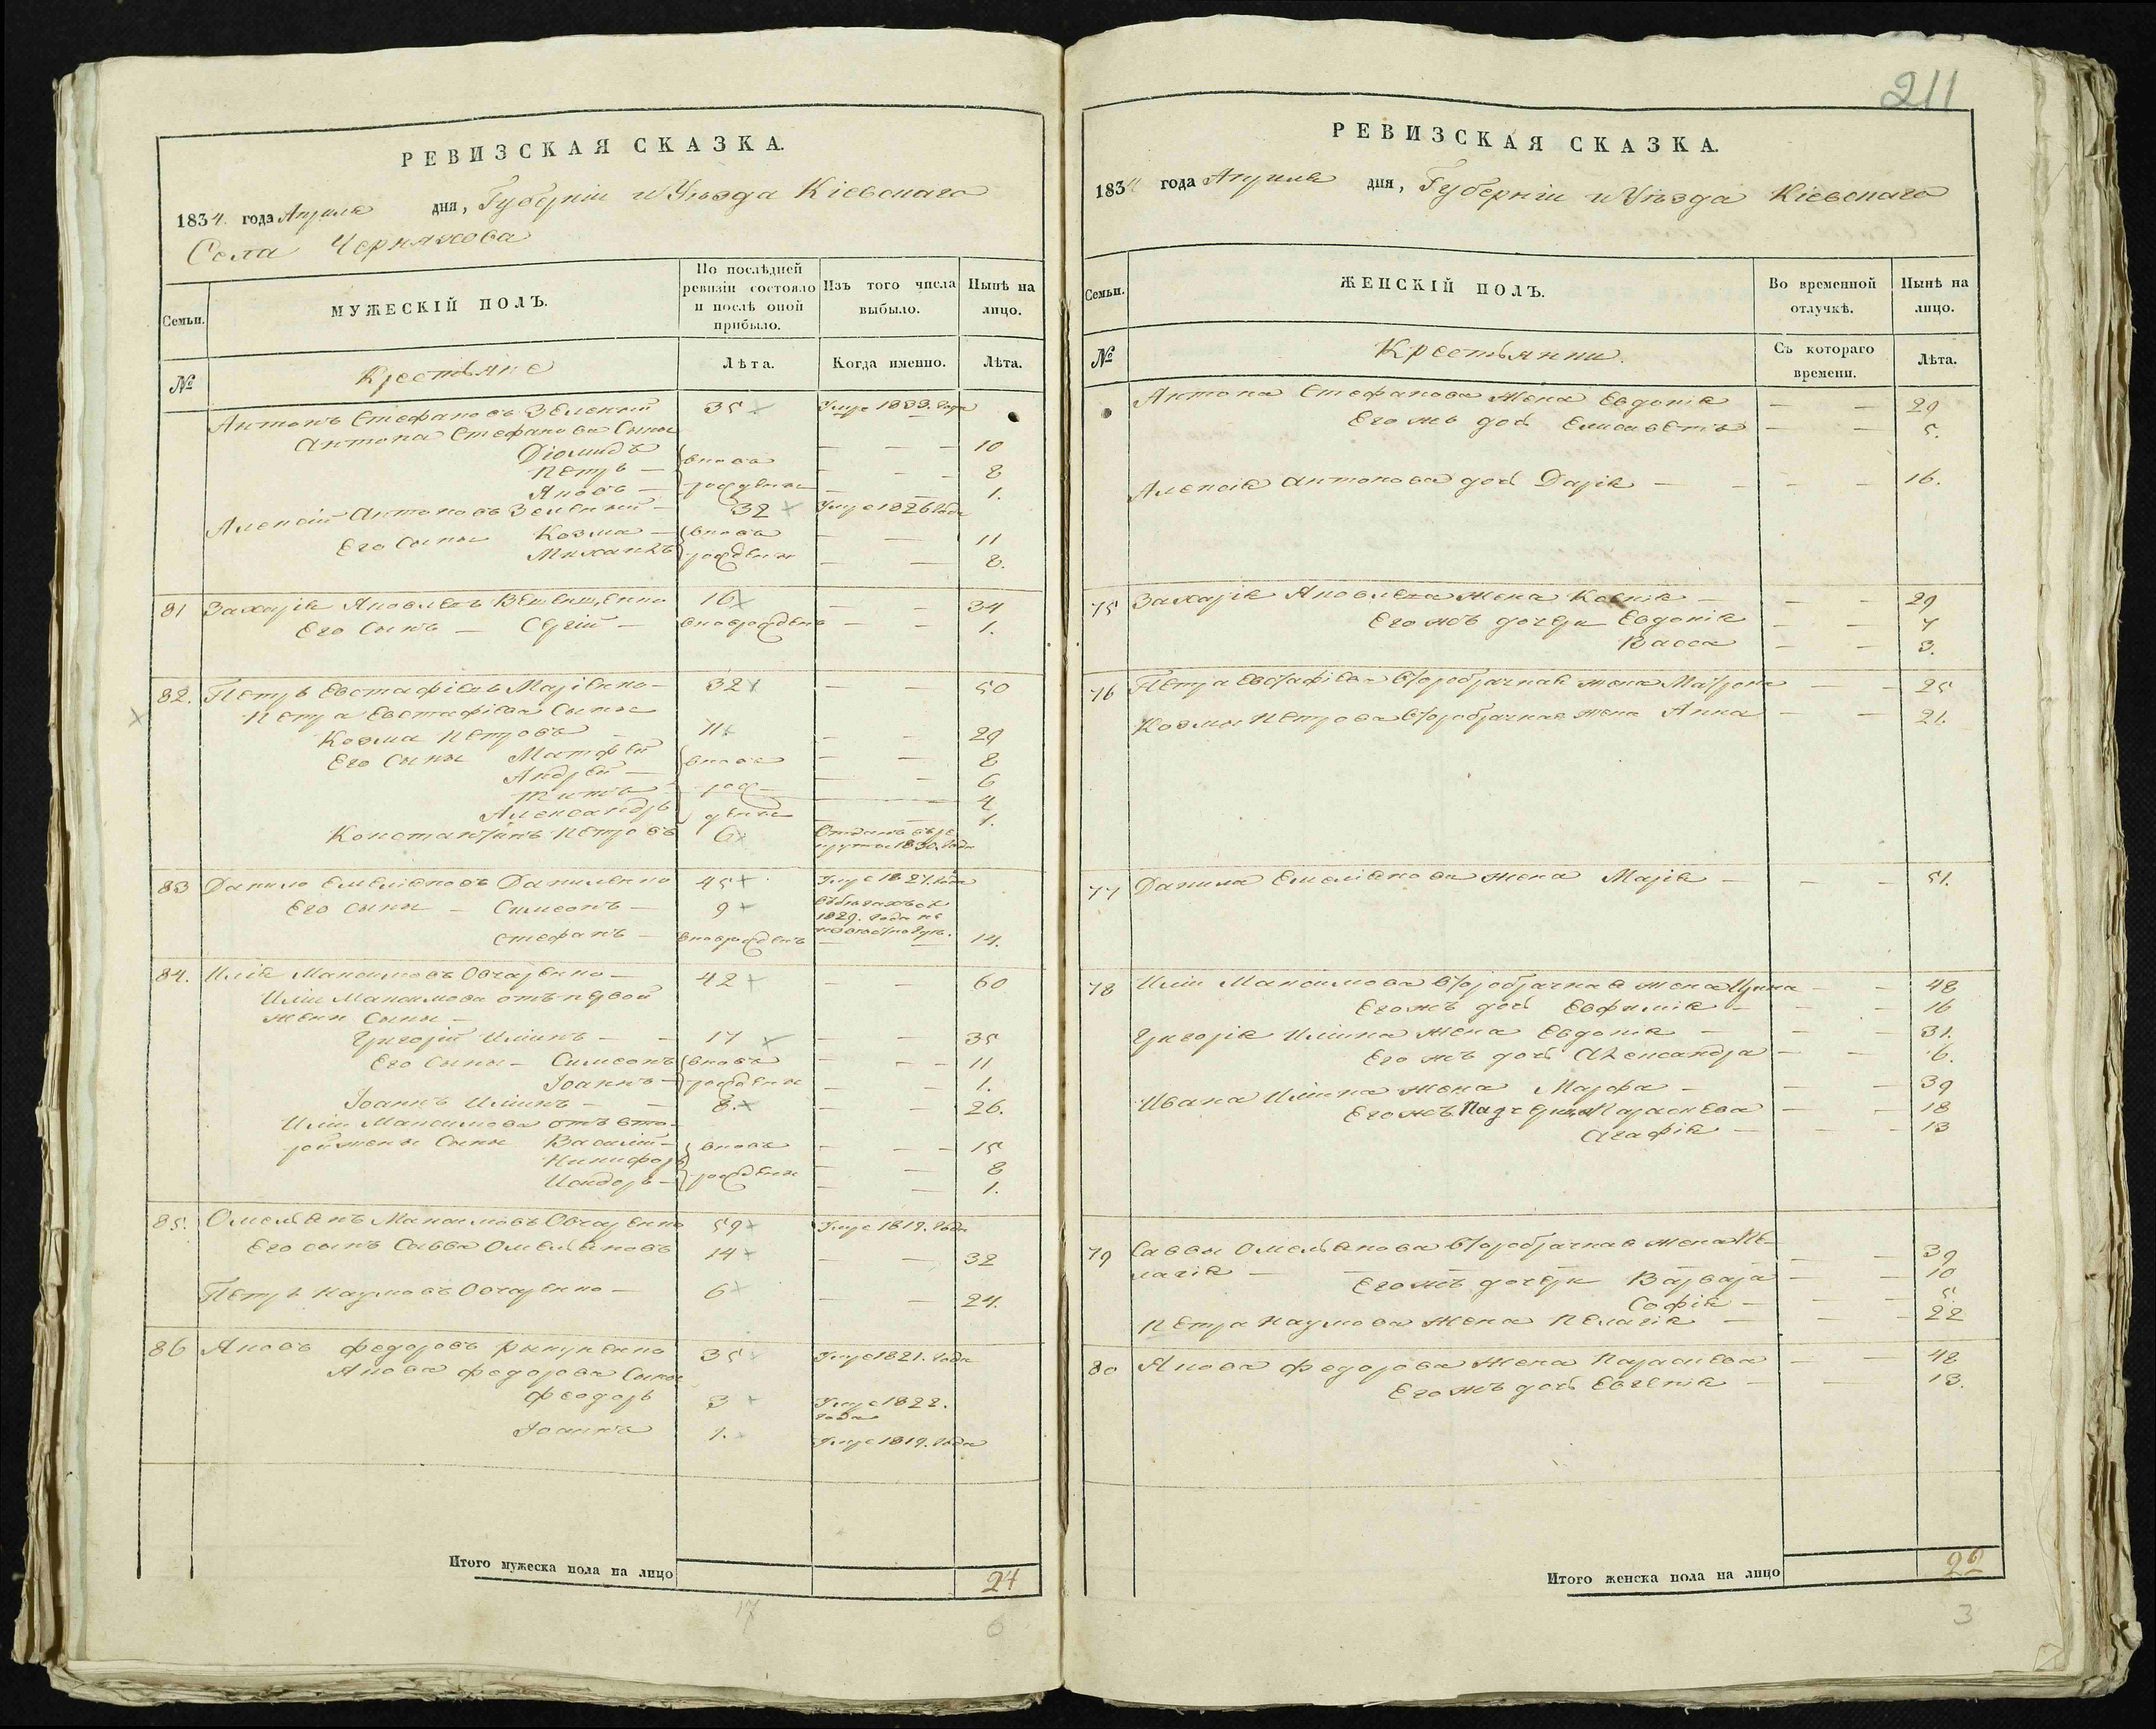 РЕВИЗСКАЯ СКАЗКА.
1834. года Апреля дня, Губерніи и Уѣзда Кіевскаго
Села Чернякова
Семьи.
МУЖЕСКІЙ ПОЛЪ.
По послѣдней ревизіи состояло и послѣ оной прибыло.
Изъ того числа выбыло.
Нынѣ на лицо.
№
Крестьяне
Лѣта.
Когда именно.
Лѣта.
Антонъ Стефановъ Зеленый 35 Умре 1833. года
Антона Стефанова Сыны
Діомидъ вновь — — 10
Петръ — — — 8
Яковъ — рожденны — — 1.
Алексій Антоновъ Зеленый — 32 Умре 1826 года
Его Сыны Козма — вновь — — 11
Михаилъ рожденны — — 8.
81 Захарія Яковлевъ 16 — — 34
Его Сынъ — Сергій — вноврожденъ — — 1.
82. Петръ Евстафіевъ Маріенко — 32 — — 50
Петра Евстафіева Сыны
Козма Петровъ — 11 — — 29
Его Сыны Матфей внов — — 8
Андрей — — — 6
Титъ — рож — 4
Александръ денны — — 1.
Константинъ Петровъ 6 Отданъ въ ре
круты 1830. года
83 Данило Емеліановъ Даниленко 45 Умре 1827. года
Его сыны — Симеонъ — 9 Въ бѣгахъ съ
1829. года не
Стефанъ — вноврожденъ — — 14.
84. Илія Максимовъ Овчаренко — 42 — — 60
Иліи Максимова отъ первой
жены сыны —
Григорій Иліинъ — — 17 — — 35
Его Сыны — Симеонъ вновь — — 11
Іоаннъ — рожденны — — 1.
Іоаннъ Иліинъ — — 8. — — 26.
Иліи Максимова отъ вто-
рой жены Сыны Василій — вновь — — 15
Никифоръ — — 8
Исидоръ — рожденны — — 1.
85. Омеліанъ Максимовъ Овчаренко 59 Умре 1819. года
Его сынъ Савва Омеліановъ 14 — — 32
Петръ Наумовъ Овчаренко — 6 — — 24.
86 Яковъ Федоровъ 35 Умре 1821. года
Якова Федорова Сыны
Феодоръ 3 Умре 1822.
года
Іоаннъ 1. Умре 1819. года
Итого мужеска пола на лицо 24
17 6
211
РЕВИЗСКАЯ СКАЗКА.
1834 года Апреля дня, Губерніи и Уѣзда Кіевскаго
Семьи.
ЖЕНСКІЙ ПОЛЪ.
Во временной отлучкѣ.
Нынѣ на лицо.
№
Крестьянки.
Съ котораго времени.
Лѣта.
Антона Стефанова жена Евдокія — — 29
Его жъ дочь Елисавета — — 5.
Алексія Антонова дочь Дарія — — — 16.
75 Захарія Яковлева жена Ксенія — — — 29
Его жъ дочери Евдокія — — 7
Васса — — 3.
76 Петра Евстафіева второбрачная жена Матрона — — 25
Козмы Петрова второбрачная жена Анна — — 21.
77 Данила Емеліанова жена Марія — — — 51.
78 Иліи Максимова второбрачная жена Ирина — — 48
Его жъ дочь Евфимія — — — 16
Григорія Иліина жена Евдокія — — — 31.
Его жъ дочь Александра — — 6.
Ивана Иліина жена Марфа — — — 39
Его жъ Падчерицы Параскева — — 18
Агафія — — — 13
79 Саввы Омеліанова второбрачная жена Пе-
лагія — — — 39
Его жъ дочери Варвара — — 10
Софія — — — 5.
Петра Наумова жена Пелагія — — — 22
80 Якова Федорова жена Параскева — — 48
Его жъ дочь Евгенія — — — 13.
Итого женска пола на лицо 22
3